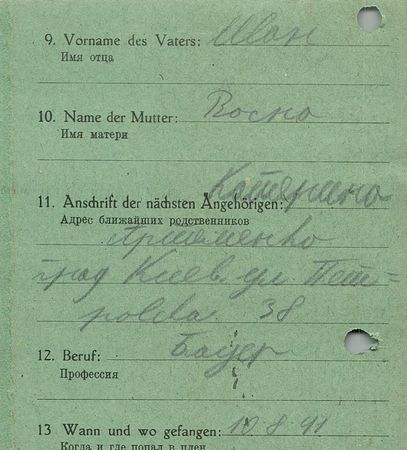 9. Vorname des Vaters: Иван
Имя отца
10. Name der Mutter:
Имя матери
Катерина
11. Anschrift der nächsten Angehörigen:
Адрес ближайших родственников
Артеменко
град Киев ул
38
12. Beruf: Бауер
Профессия
13 Wann und wo gefangen: 10.8.41
Когда и где попал в плен